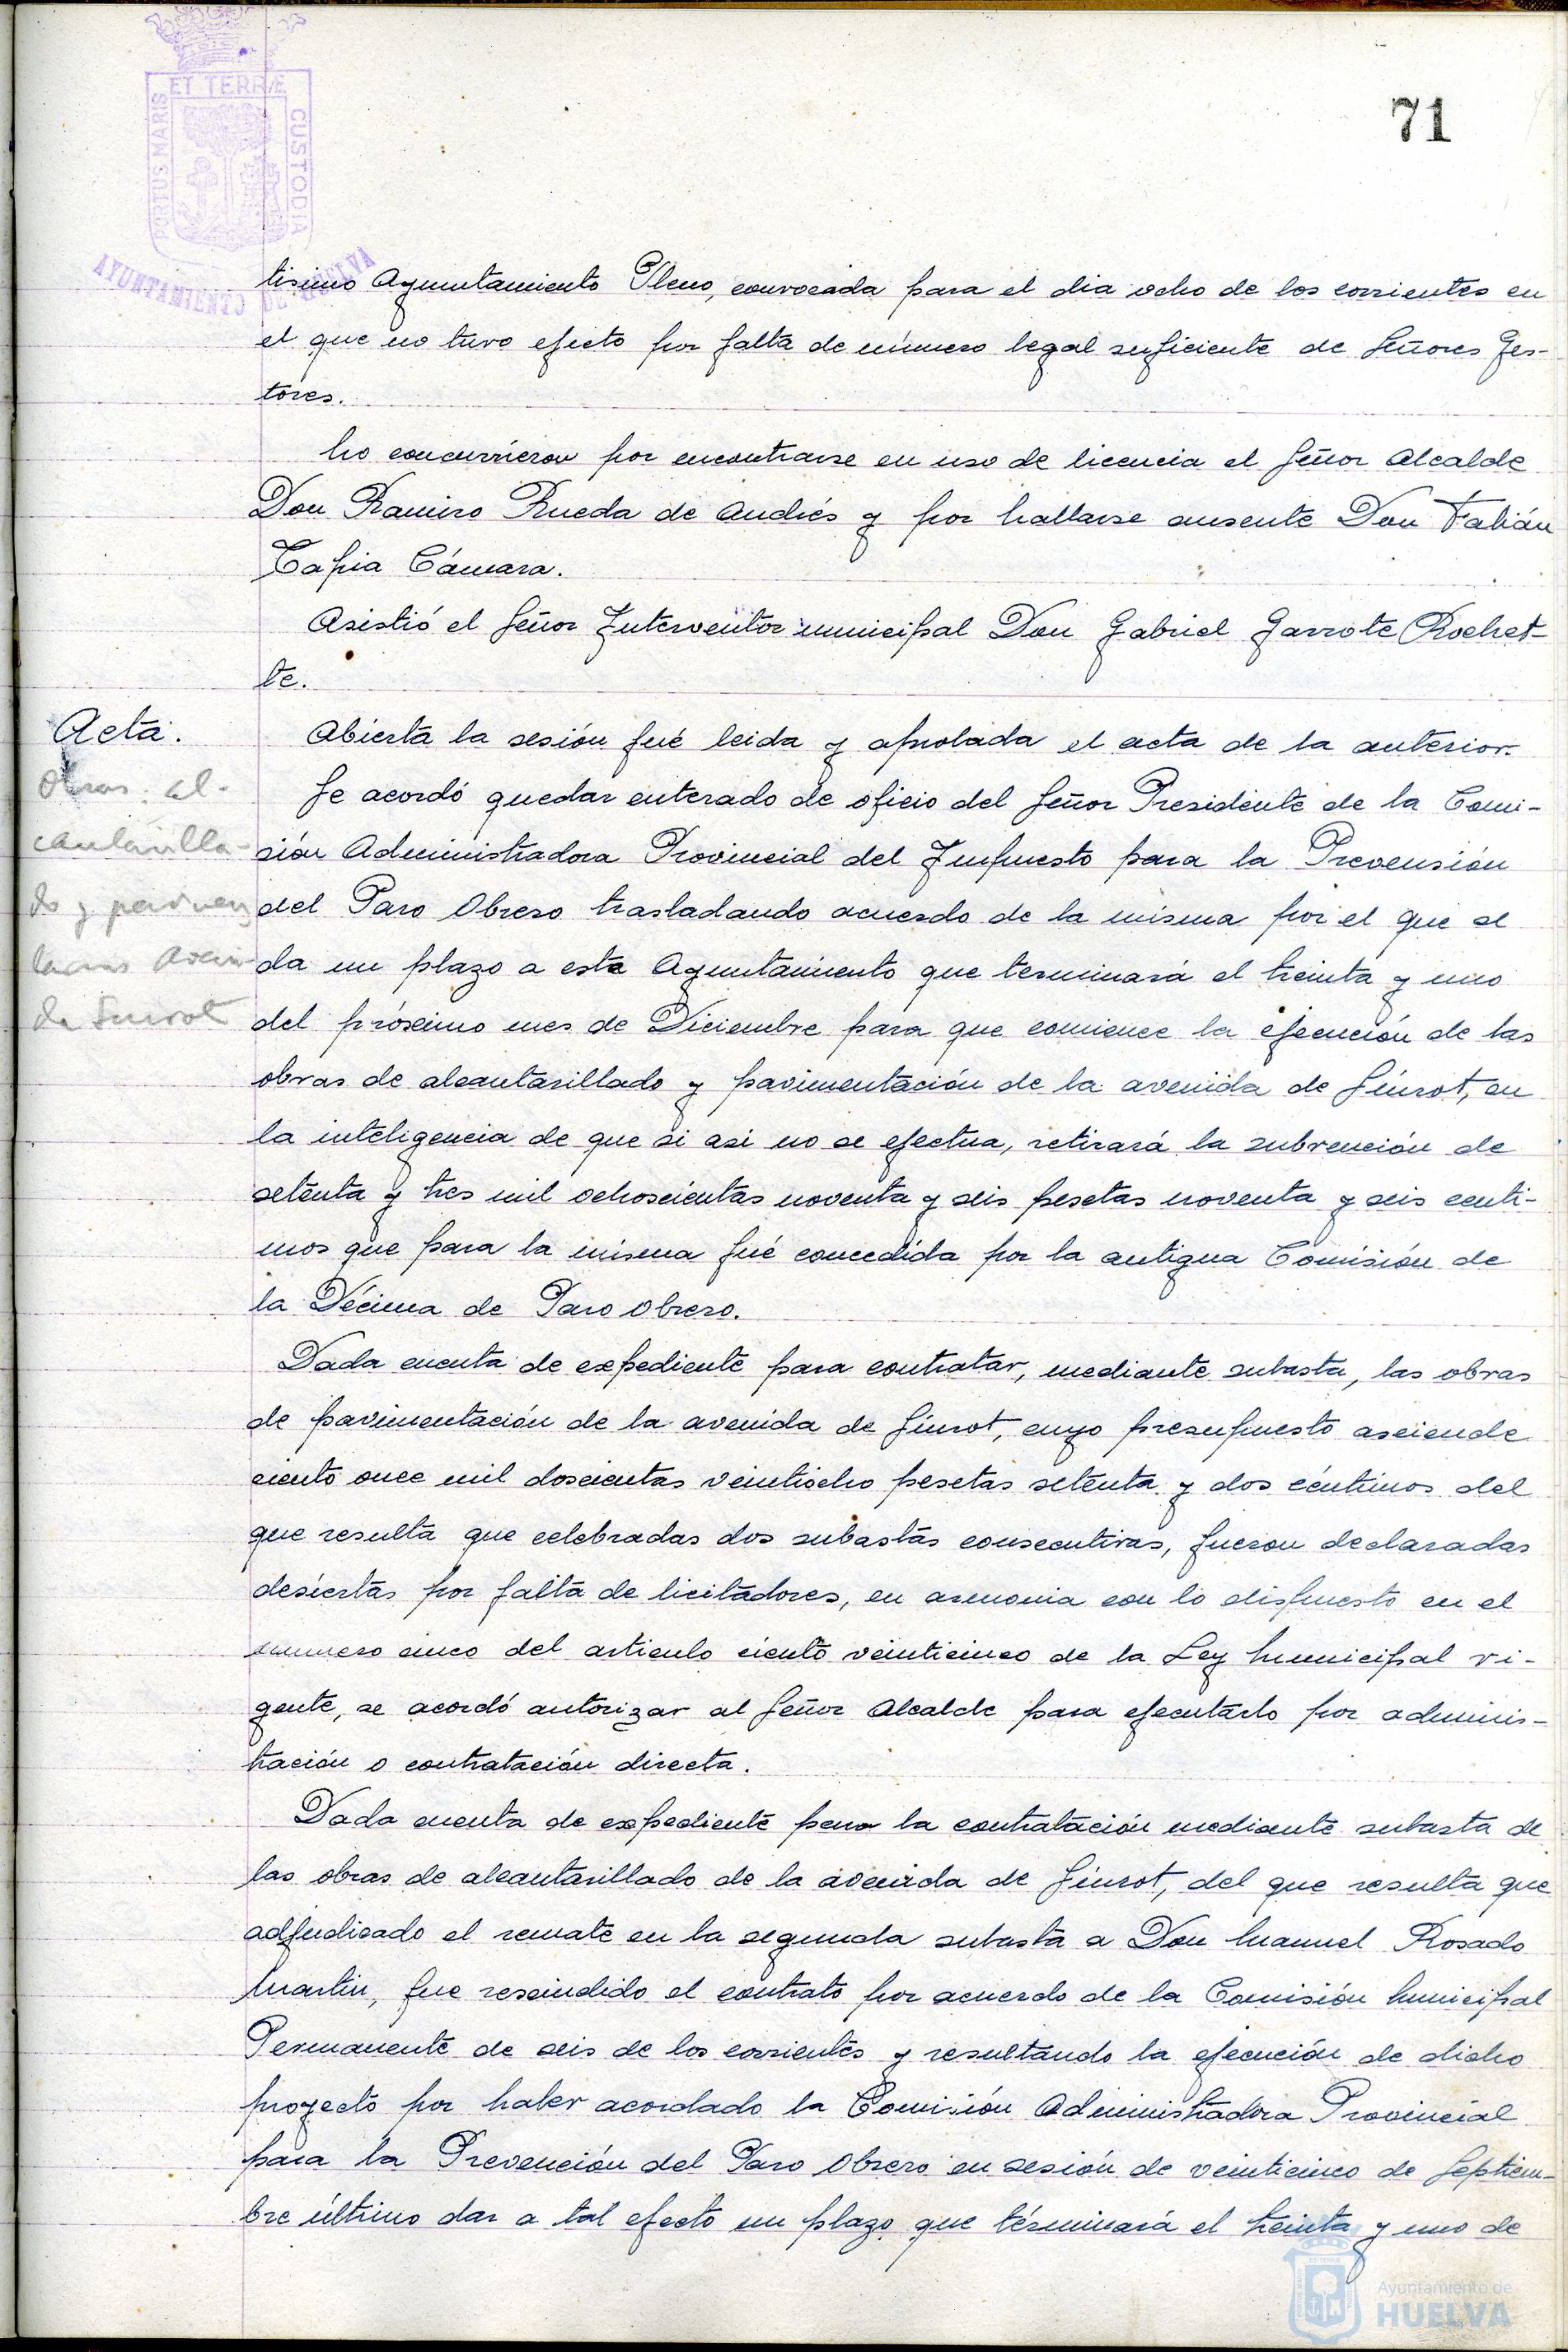 71
ET TERRÆ
PORTUS MARIS
CUSTODIA
AYUNTAMIENTO DE HUELVA
tisimo Ayuntamiento Pleno, convocada para el dia ocho de los corrientes en
el que no tuvo efecto por falta de número legal suficiente de Señores Ges-
tores.
No concurrieron por encontrarse en uso de licencia el Señor Alcalde
Don Ramiro Rueda de Andrés y por hallarse ausente Don Fabián
Tapia Cámara.
Asistió el Señor Interventor municipal Don Gabriel Garrote Rochet-
te.
Acta.
Abierta la sesión fué leida y aprobada el acta de la anterior.
Obras: al-
cantarilla-
do y pavimen
Aveni-
da Sundt
Se acordó quedar enterado de oficio del Señor Presidente de la Comi-
sión Administradora Provincial del Impuesto para la Prevensión
del Paro Obrero trasladando acuerdo de la misma por el que se
da un plazo a este Ayuntamiento que terminará el treinta y uno
del próximo mes de Diciembre para que comience la ejecución de las
obras de alcantarillado y pavimentación de la avenida de
la inteligencia de que si asi no se efectua, retirará la subvención de
setenta y tres mil ochoscientas noventa y seis pesetas noventa y seis centi-
mos que para la misma fué concedida por la antigua Comisión de
la Décima de Paro Obrero.
Dada cuenta de expediente para contratar, mediante subasta, las obras
de pavimentación de la avenida de cuyo presupuesto asciende
ciento once mil doscientas veintiocho pesetas setenta y dos céntimos del
que resulta que celebradas dos subastas consecutivas, fueron declaradas
desiertas por falta de licitadores, en armonia con lo dispuesto en el
numero cinco del articulo ciento veinticinco de la Ley Municipal vi-
gente, se acordó autorizar al Señor Alcalde para ejecutarlo por adminis-
tración o contratación directa.
Dada cuenta de expediente para la contratación mediante subasta de
las obras de alcantarillado de la avenida de del que resulta que
adjudicado el remate en la segunda subasta a Don Manuel Rosado
Martin, fue rescindido el contrato por acuerdo de la Comisión Municipal
Permanente de seis de los corrientes y resultando la ejecución de dicho
proyecto por haber acordado la Comisión Administradora Provincial
para la Prevención del Paro Obrero en sesión de veinticinco de Septiem-
bre último dar a tal efecto un plazo que términará el treinta y uno de
Ayuntamiento de
HUELVA